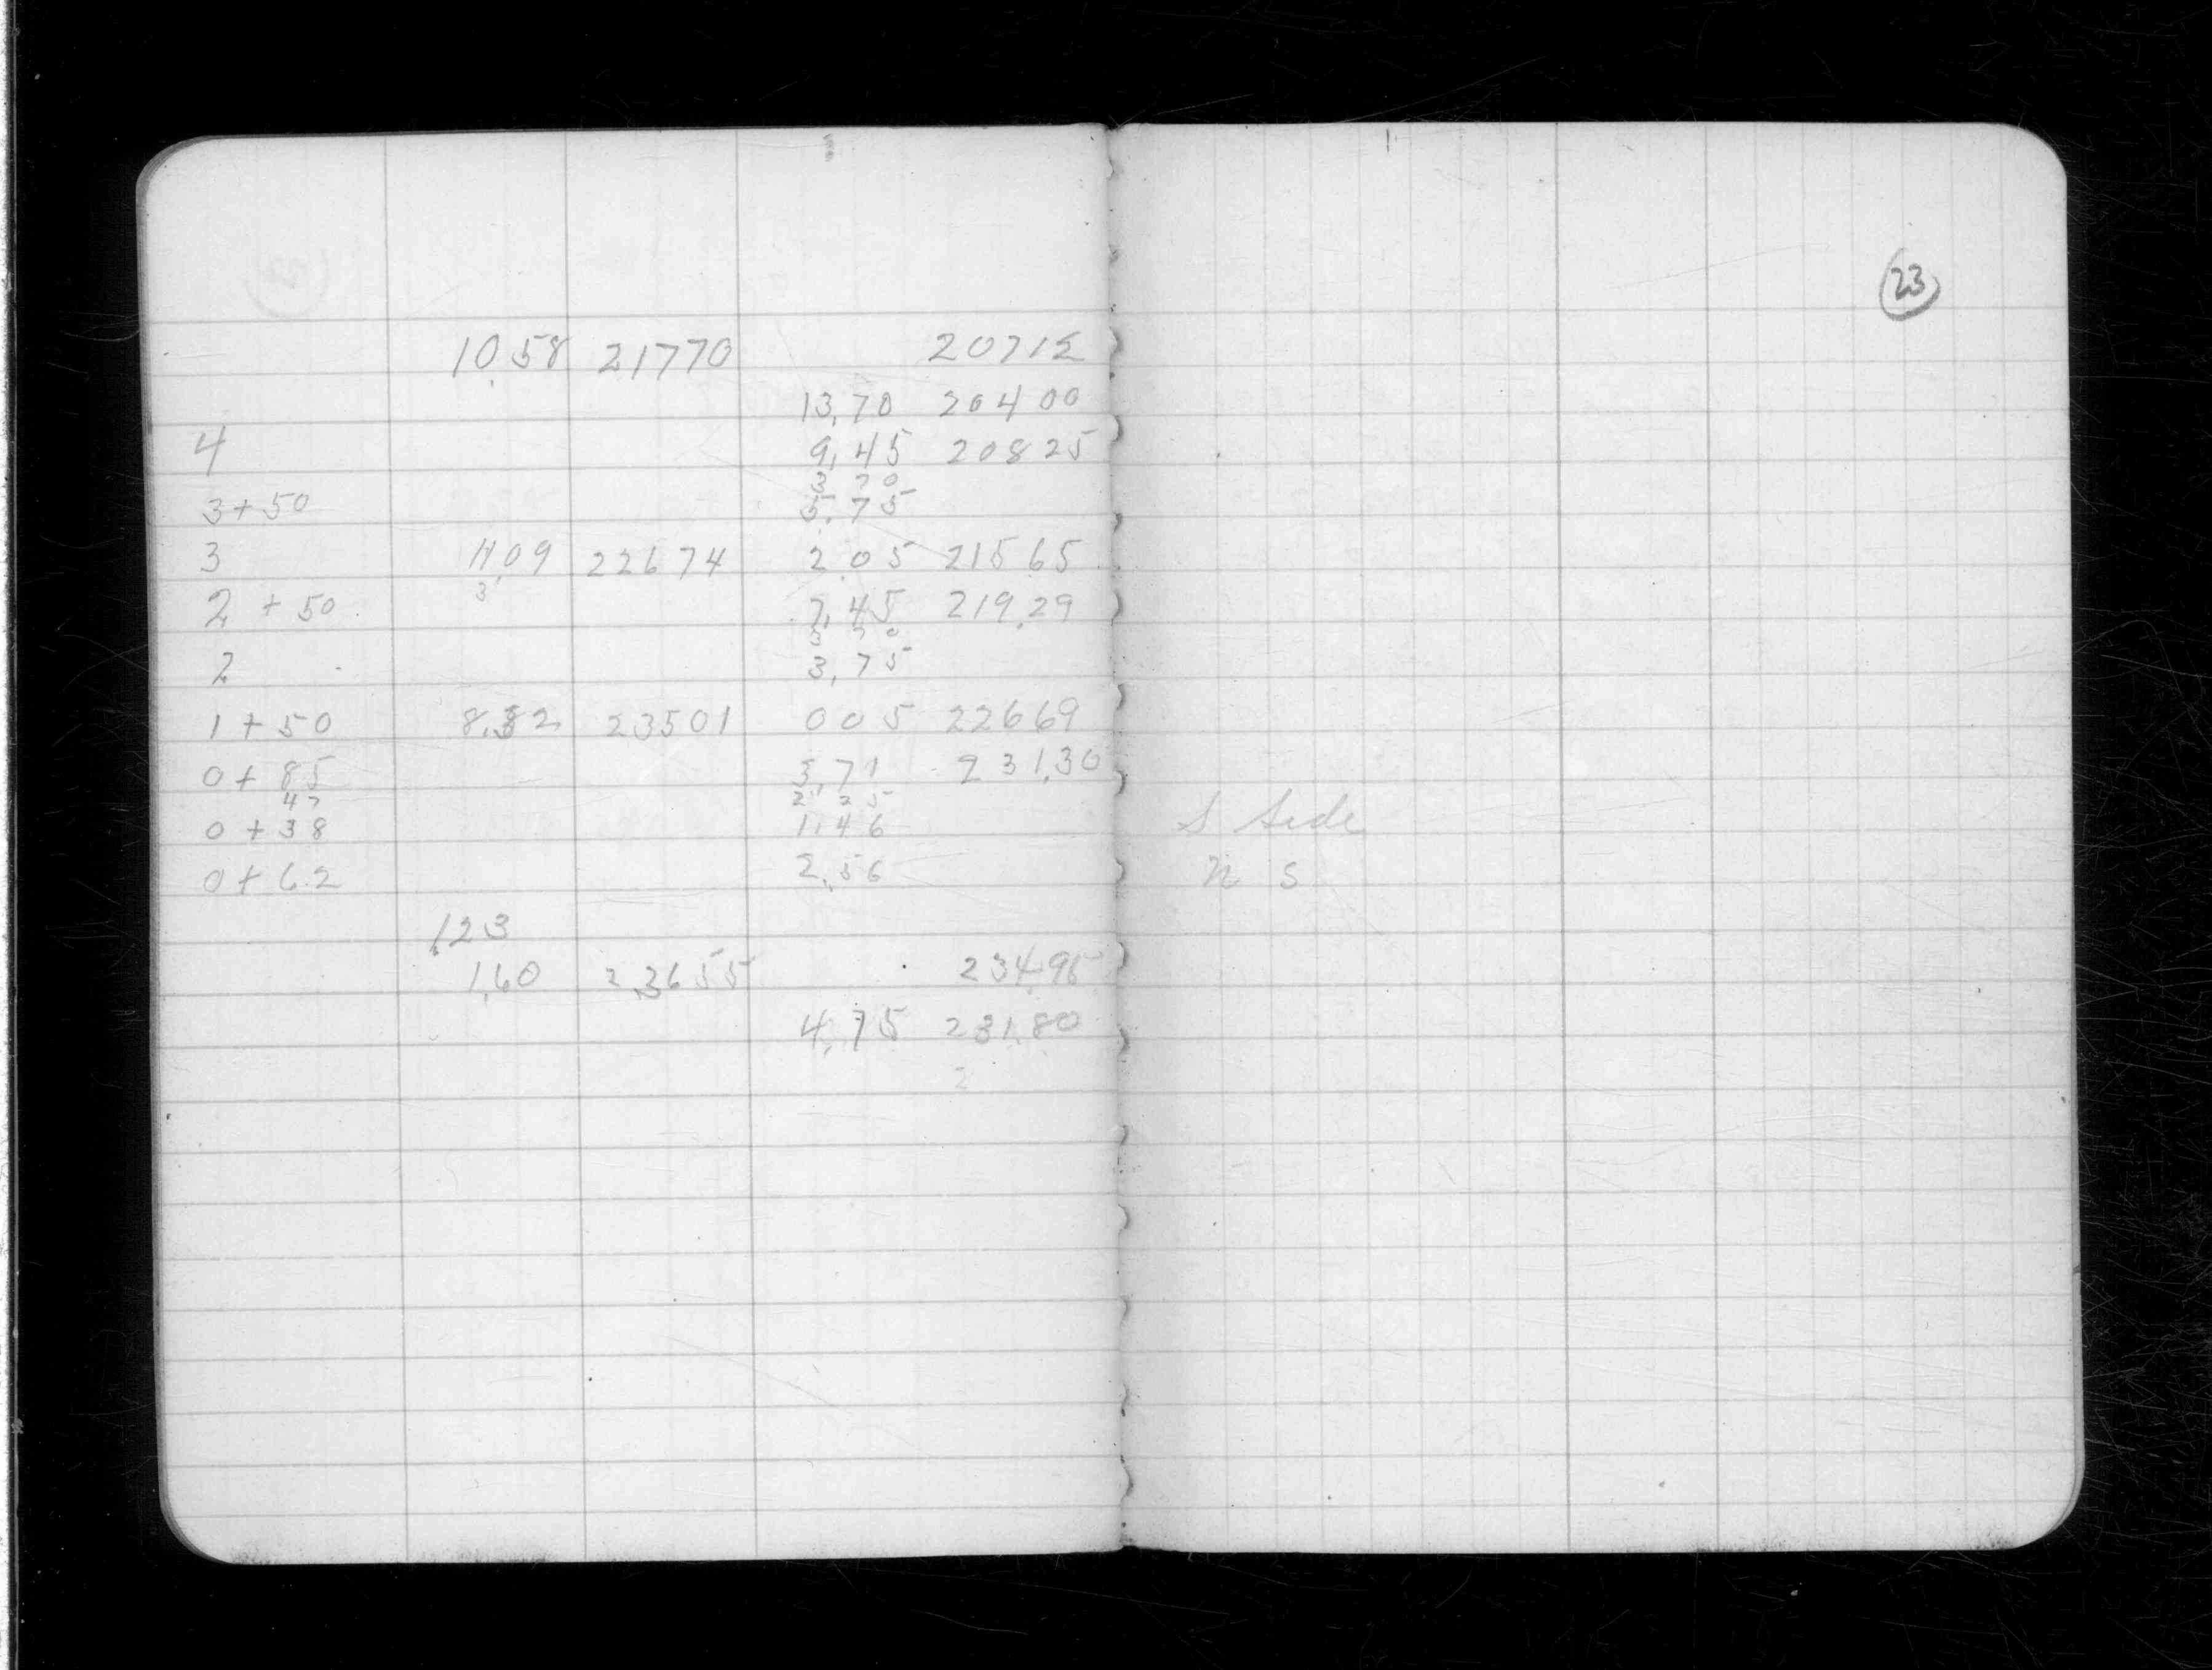 23
10.58 21770 20712
13.70 20400
4 9.45 20825
3 70
3+50 5.75
3 11.09 22674 2.05 21565
3
2 + 50 7.45 219.29
3 70
2 3.75
1 + 50 8.32 23501 005 22669
0 + 85 3.71 231.30
47 2 25
0 + 38 1.46 S Side
0 + 62 2.56 N S
.123
1.60 23655 234.95
4.75 231.80
2